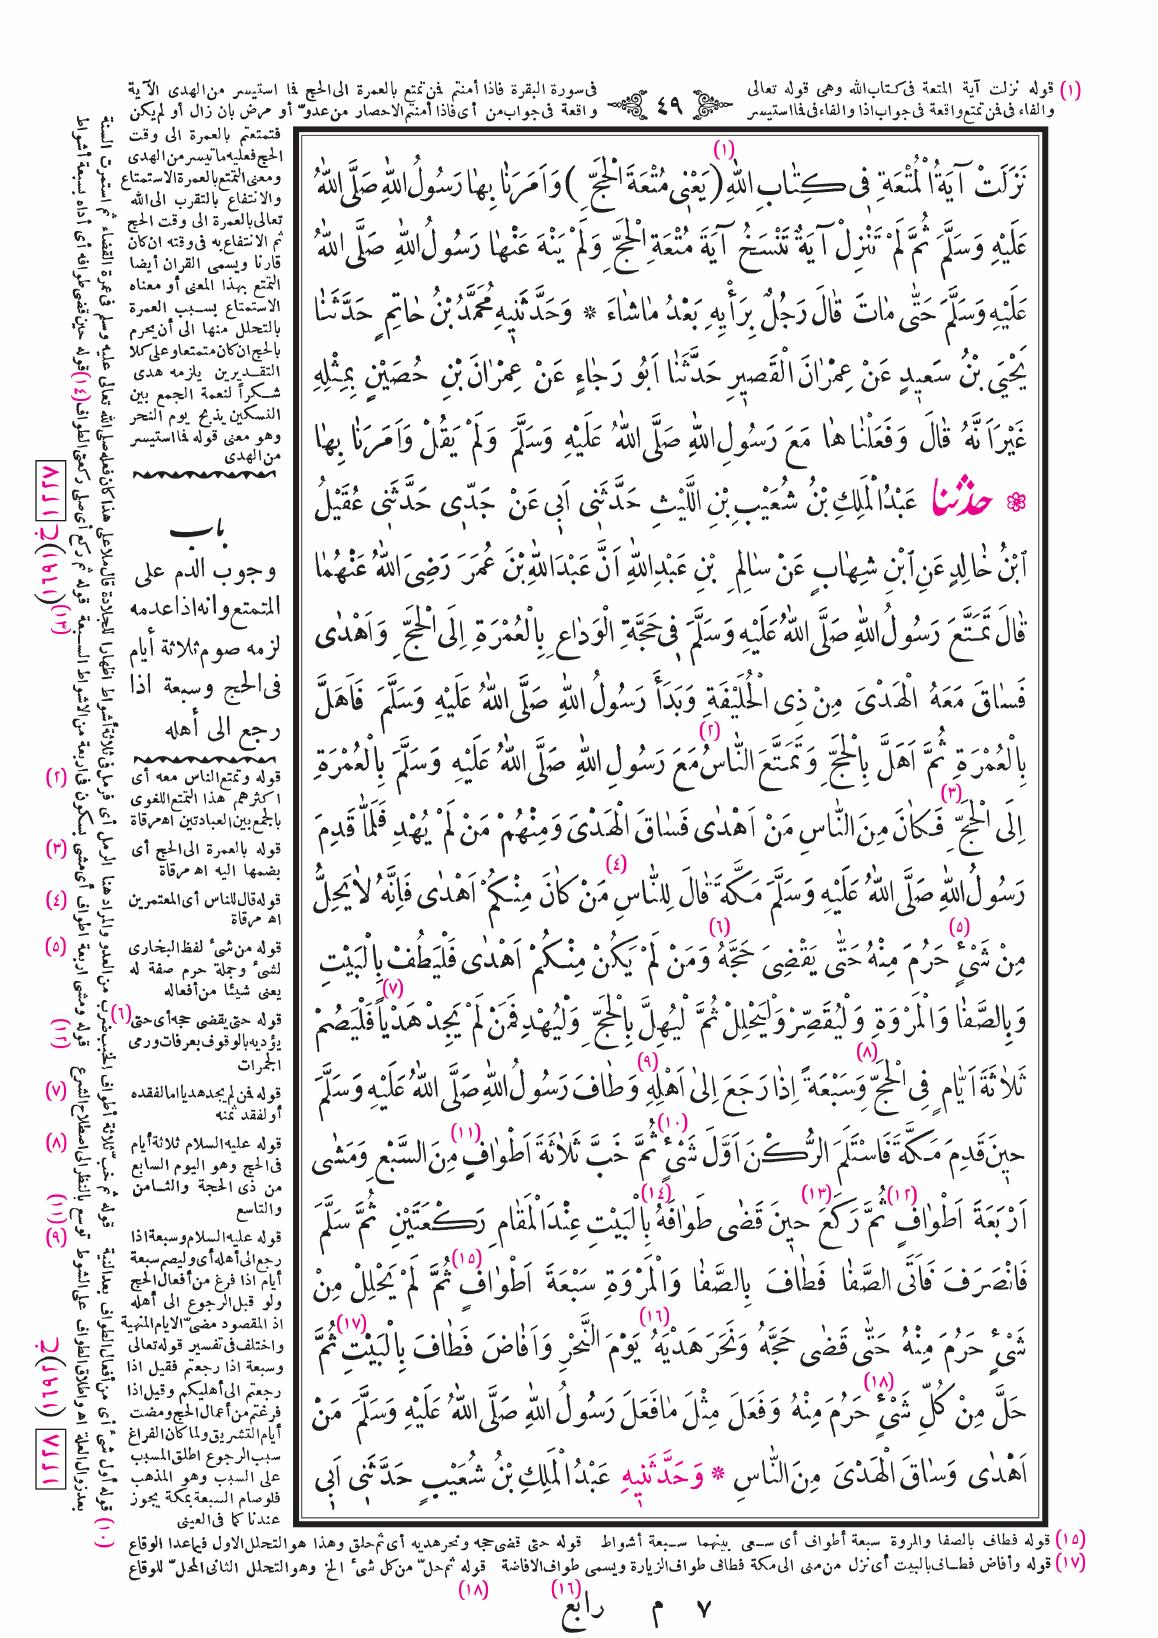 (١) قوله نزلت آية المتعة فى كتاب الله وهى قوله تعالى
والفاء فى فمن تمتع واقعة فى جواب اذا والفاء فى فما استيسر
٤٩
فى سورة البقرة فاذا أمنتم فمن تمتع بالعمرة الى الحج فما استيسر من الهدى الآية
واقعة فى جواب من أى فاذا أمنتم الاحصار من عدوّ أو مرض بان زال أو لم يكن
(١)
نَزَلَتْ آيَةُ الْمُتْعَةِ فِى كِتَابِ اللّٰهِ (يَعْنِى مُتْعَةَ الْحَجِّ) وَاَمَرَنَا بِهَا رَسُولُ اللّٰهِ صَلَّى اللّٰهُ
عَلَيْهِ وَسَلَّمَ ثُمَّ لَمْ تَنْزِلْ آيَةٌ تَنْسَخُ آيَةَ مُتْعَةِ الْحَجِّ وَلَمْ يَنْهَ عَنْهَا رَسُولُ اللّٰهِ صَلَّى اللّٰهُ
عَلَيْهِ وَسَلَّمَ حَتّٰى مَاتَ قَالَ رَجُلٌ بِرَأْيِهِ بَعْدُ مَاشَاءَ * وَحَدَّثَنِيهِ مُحَمَّدُ بْنُ حَاتِمٍ حَدَّثَنَا
يَحْيَى بْنُ سَعِيدٍ عَنْ عِمْرَانَ الْقَصِيرِ حَدَّثَنَا اَبُو رَجَاءٍ عَنْ عِمْرَانَ بْنِ حُصَيْنٍ بِمِثْلِهِ
غَيْرَ اَنَّهُ قَالَ وَفَعَلْنَاهَا مَعَ رَسُولِ اللّٰهِ صَلَّى اللّٰهُ عَلَيْهِ وَسَلَّمَ وَلَمْ يَقُلْ وَاَمَرَنَا بِهَا
❁ حدثنا عَبْدُ الْمَلِكِ بْنُ شُعَيْبِ بْنِ اللَّيْثِ حَدَّثَنِى اَبِى عَنْ جَدِّى حَدَّثَنِى عُقَيْلُ
ابْنُ خَالِدٍ عَنِ ابْنِ شِهَابٍ عَنْ سَالِمِ بْنِ عَبْدِ اللّٰهِ اَنَّ عَبْدَ اللّٰهِ بْنَ عُمَرَ رَضِىَ اللّٰهُ عَنْهُمَا
قَالَ تَمَتَّعَ رَسُولُ اللّٰهِ صَلَّى اللّٰهُ عَلَيْهِ وَسَلَّمَ فِى حَجَّةِ الْوَدَاعِ بِالْعُمْرَةِ اِلَى الْحَجِّ وَاَهْدٰى
فَسَاقَ مَعَهُ الْهَدْىَ مِنْ ذِى الْحُلَيْفَةِ وَبَدَأَ رَسُولُ اللّٰهِ صَلَّى اللّٰهُ عَلَيْهِ وَسَلَّمَ فَاَهَلَّ
(٢)
بِالْعُمْرَةِ ثُمَّ اَهَلَّ بِالْحَجِّ وَتَمَتَّعَ النَّاسُ مَعَ رَسُولِ اللّٰهِ صَلَّى اللّٰهُ عَلَيْهِ وَسَلَّمَ بِالْعُمْرَةِ
(٣)
اِلَى الْحَجِّ فَكَانَ مِنَ النَّاسِ مَنْ اَهْدٰى فَسَاقَ الْهَدْىَ وَمِنْهُمْ مَنْ لَمْ يُهْدِ فَلَمَّا قَدِمَ
(٤)
رَسُولُ اللّٰهِ صَلَّى اللّٰهُ عَلَيْهِ وَسَلَّمَ مَكَّةَ قَالَ لِلنَّاسِ مَنْ كَانَ مِنْكُمْ اَهْدٰى فَاِنَّهُ لَا يَحِلُّ
(٥) (٦)
مِنْ شَىْءٍ حَرُمَ مِنْهُ حَتّٰى يَقْضِىَ حَجَّهُ وَمَنْ لَمْ يَكُنْ مِنْكُمْ اَهْدٰى فَلْيَطُفْ بِالْبَيْتِ
(٧)
وَبِالصَّفَا وَالْمَرْوَةِ وَلْيُقَصِّرْ وَلْيَحْلِلْ ثُمَّ لْيُهِلَّ بِالْحَجِّ وَلْيُهْدِ فَمَنْ لَمْ يَجِدْ هَدْيًا فَلْيَصُمْ
(٨) (٩)
ثَلَاثَةَ اَيَّامٍ فِى الْحَجِّ وَسَبْعَةً اِذَا رَجَعَ اِلٰى اَهْلِهِ وَطَافَ رَسُولُ اللّٰهِ صَلَّى اللّٰهُ عَلَيْهِ وَسَلَّمَ
(١٠) (١١)
حِينَ قَدِمَ مَكَّةَ فَاسْتَلَمَ الرُّكْنَ اَوَّلَ شَىْءٍ ثُمَّ خَبَّ ثَلَاثَةَ اَطْوَافٍ مِنَ السَّبْعِ وَمَشٰى
(١٢) (١٣) (١٤)
اَرْبَعَةَ اَطْوَافٍ ثُمَّ رَكَعَ حِينَ قَضٰى طَوَافَهُ بِالْبَيْتِ عِنْدَ الْمَقَامِ رَكْعَتَيْنِ ثُمَّ سَلَّمَ
(١٥)
فَانْصَرَفَ فَاَتَى الصَّفَا فَطَافَ بِالصَّفَا وَالْمَرْوَةِ سَبْعَةَ اَطْوَافٍ ثُمَّ لَمْ يَحْلِلْ مِنْ
(١٦) (١٧)
شَىْءٍ حَرُمَ مِنْهُ حَتّٰى قَضٰى حَجَّهُ وَنَحَرَ هَدْيَهُ يَوْمَ النَّحْرِ وَاَفَاضَ فَطَافَ بِالْبَيْتِ ثُمَّ
(١٨)
حَلَّ مِنْ كُلِّ شَىْءٍ حَرُمَ مِنْهُ وَفَعَلَ مِثْلَ مَا فَعَلَ رَسُولُ اللّٰهِ صَلَّى اللّٰهُ عَلَيْهِ وَسَلَّمَ مَنْ
اَهْدٰى وَسَاقَ الْهَدْىَ مِنَ النَّاسِ * وَحَدَّثَنِيهِ عَبْدُ الْمَلِكِ بْنُ شُعَيْبٍ حَدَّثَنِى اَبِى
فتمتعتم بالعمرة الى وقت
الحج فعليه ما تيسر من الهدى
ومعنى التمتع بالعمرة الاستمتاع
والانتفاع بالتقرب الى الله
تعالى بالعمرة الى وقت الحج
ثم الانتفاع به فى وقته ان كان
قارنا ويسمى القران أيضا
التمتع بهذا المعنى أو معناه
الاستمتاع بسبب العمرة
بالتحلل منها الى أن يحرم
بالحج ان كان متمتعا وعلى كلا
التقديرين يلزمه هدى
شكراً لنعمة الجمع بين
النسكين يذبح يوم النحر
وهو معنى قوله فما استيسر
من الهدى
باب
وجوب الدم على
المتمتع وانه اذا عدمه
لزمه صوم ثلاثة أيام
فى الحج وسبعة اذا
رجع الى أهله
(٢) قوله وتمتع الناس معه أى
اكثرهم هذا التمتع اللغوى
بالجمع بين العبادتين اه مرقاة
(٣) قوله بالعمرة الى الحج أى
بضمها اليه اه مرقاة
(٤) قوله قال للناس أى المعتمرين
اه مرقاة
(٥) قوله من شىء لفظ البخارى
لشىء وجملة حرم صفة له
يعنى شيئا من أفعاله
(٦) قوله حتى يقضى حجه أى حتى
يؤديه بالوقوف بعرفات ورمى
الجمرات
(٧) قوله فمن لم يجد هديا اما لفقده
أو لفقد ثمنه
(٨) قوله عليه السلام ثلاثة أيام
فى الحج وهو اليوم السابع
من ذى الحجة والثامن
والتاسع
(٩) قوله عليه السلام وسبعة اذا
رجع الى أهله أى وليصم سبعة
أيام اذا فرغ من أفعال الحج
ولو قبل الرجوع الى أهله
اذ المقصود مضىّ الايام المنهية
واختلف فى تفسير قوله تعالى
وسبعة اذا رجعتم فقيل اذا
رجعتم الى أهليكم وقيل اذا
فرغتم من أعمال الحج ومضت
أيام التشريق ولما كان الفراغ
سبب الرجوع اطلق المسبب
على السبب وهو المذهب
فلو صام السبعة بمكة يجوز
عندنا كما فى العينى
(١٠) قوله أول شىء أى من أفعال الطواف بعد النية (١١) قوله ثم خبّ ثلاثة أطواف الخبب ضرب من العدو والمراد هنا الرمل أى فرمل فى ثلاثة أشواط اظهارا للجلادة قال ملا على هذا كان فعله صلى الله تعالى عليه وسلم فى عمرة القضاء ثم استمرت السنة
بعد زوال العلة اه واطلاق الطواف على الشوط توسع بالنظر الى اصطلاح الشرع (١٢) قوله ومشى اربعة اطواف أى مشى بسكون فى اربعة من الاشواط السبعة (١٣) قوله ثم ركع أى صلى ركعتى الطواف (١٤) قوله حين قضى طوافه أى أداه بسبعة أشواط
٨١١١ ج (١٩٦١)
ج (١٩٦١) ٧١١١
(١٥) قوله فطاف بالصفا والمروة سبعة أطواف أى سعى بينهما سبعة أشواط (١٦) قوله حتى قضى حجه ونحر هديه أى ثم حلق وهذا هو التحلل الاول فيما عدا الوقاع
(١٧) قوله وأفاض فطاف بالبيت أى نزل من منى الى مكة فطاف طواف الزيارة ويسمى طواف الافاضة (١٨) قوله ثم حلّ من كل شىء الخ وهو التحلل الثانى المحلّ للوقاع
٧ م رابع